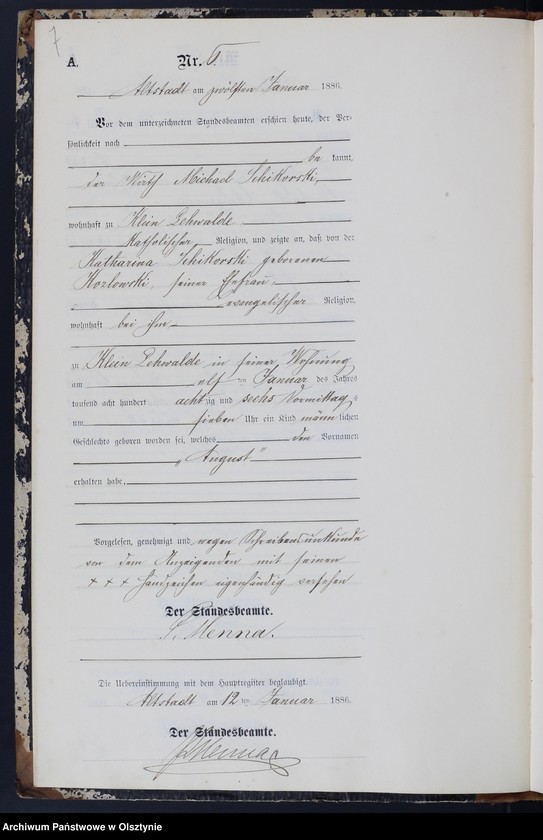 7
A.
Nr. 6.
Altstadt am zwölften Januar 1886.
Vor dem unterzeichneten Standesbeamten erschien heute, der Per-
sönlichkeit nach
be kannt,
der Wirth Michael Schikorski,
wohnhaft zu Klein Lehwalde
Katholischer Religion, und zeigte an, daß von der
Katharina Schikorski geborenen
Kozlowski, seiner Ehefrau,
evangelischer Religion,
wohnhaft bei ihm
zu Klein Lehwalde in seiner Wohnung
am elf ten Januar des Jahres
tausend acht hundert achtzig und sechs Vormittags
um sieben Uhr ein Kind männlichen
Geschlechts geboren worden sei, welches den Vornamen
„August"
erhalten habe.
Vorgelesen, genehmigt und wegen Schreibensunkunde
von dem Anzeigenden mit seinen
+ + + Handzeichen eigenhändig versehen
Der Standesbeamte.
Menna.
Die Uebereinstimmung mit dem Hauptregister beglaubigt.
Altstadt am 12 ten Januar 1886.
Der Standesbeamte.
Menna
Archiwum Państwowe w Olsztynie